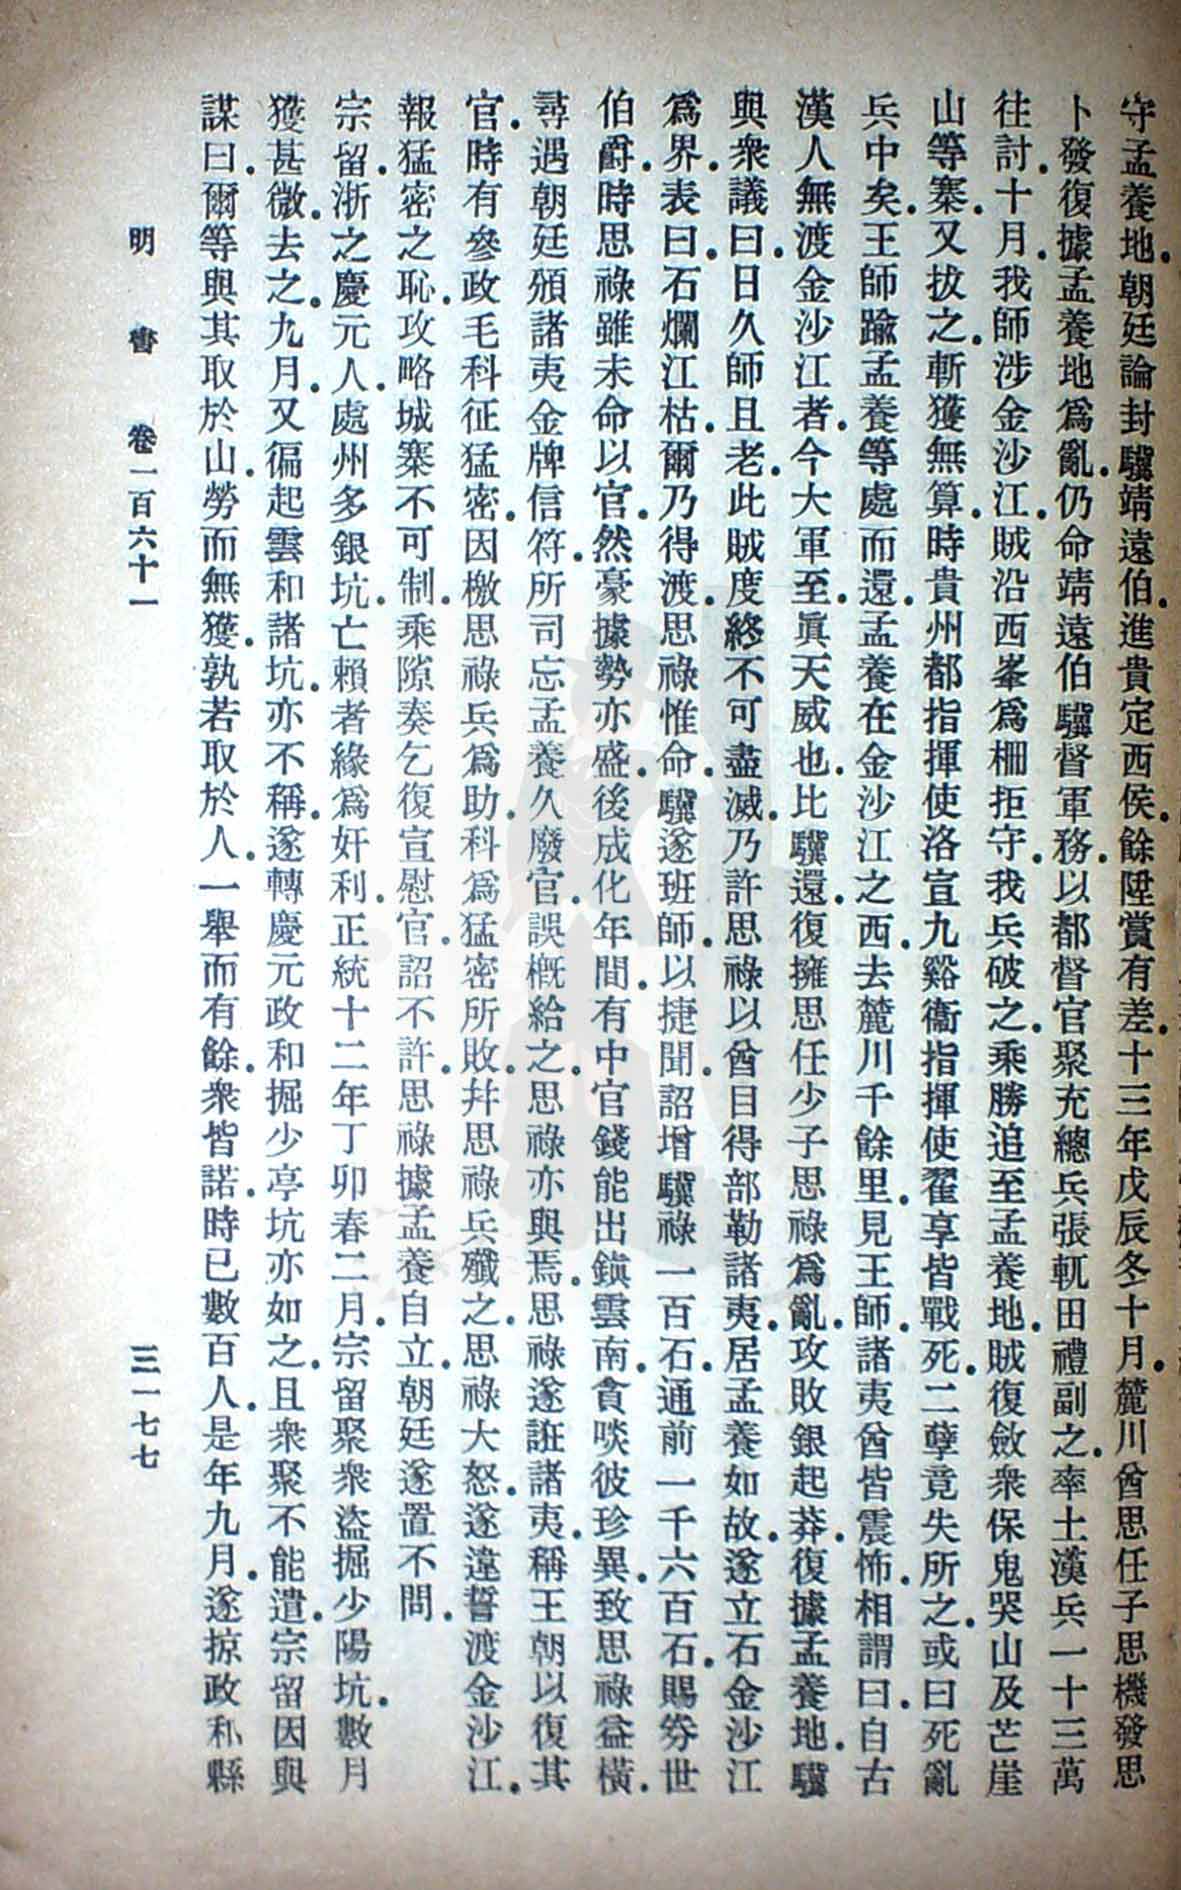 守孟養地朝廷論封驥靖遠伯進貴定西侯餘陞賞有差十三年戊辰冬十月麓川酋思任子思機發思
卜發復據孟養地爲亂仍命靖遠伯驥督軍務以都督官聚充總兵張軏田禮副之率土漢兵一十三萬
往討十月我師涉金沙江賊沿西峯爲柵拒守我兵破之乘勝追至孟養地賊復斂衆保鬼哭山及芒崖
山等寨又拔之斬獲無算時貴州都指揮使洛宣九谿衞指揮使翟享皆戰死二孽竟失所之或曰死亂
兵中矣王師踰孟養等處而還孟養在金沙江之西去麓川千餘里見王師諸夷酋皆震怖相謂曰自古
漢人無渡金沙江者今大軍至眞天威也比驥還復擁思任少子思祿爲亂攻敗銀起莽復據孟養地驥
與衆議曰日久師且老此賊度終不可盡滅乃許思祿以酋目得部勒諸夷居孟養如故遂立石金沙江
爲界表曰石爛江枯爾乃得渡思祿惟命驥遂班師以捷聞詔增驥祿一百石通前一千六百石賜券世
伯爵時思祿雖未命以官然豪據勢亦盛後成化年間有中官錢能出鎭雲南貪啖彼珍異致思祿益橫
尋遇朝廷頒諸夷金牌信符所司忘孟養久廢官誤槪給之思祿亦與焉思祿遂誑諸夷稱王朝以復其
官時有參政毛科征猛密因檄思祿兵爲助科爲猛密所敗幷思祿兵殲之思祿大怒遂違誓渡金沙江
報猛密之恥攻略城寨不可制乘隙奏乞復宣慰官詔不許思祿據孟養自立朝廷遂置不問
宗留浙之慶元人處州多銀坑亡賴者緣爲奸利正統十二年丁卯春二月宗留聚衆盜掘少陽坑數月
獲甚微去之九月又徧起雲和諸坑亦不稱遂轉慶元政和掘少亭坑亦如之且衆聚不能遣宗留因與
謀曰爾等與其取於山勞而無獲孰若取於人一舉而有餘衆皆諾時已數百人是年九月遂掠政和縣
明書 卷一百六十一 三一七七